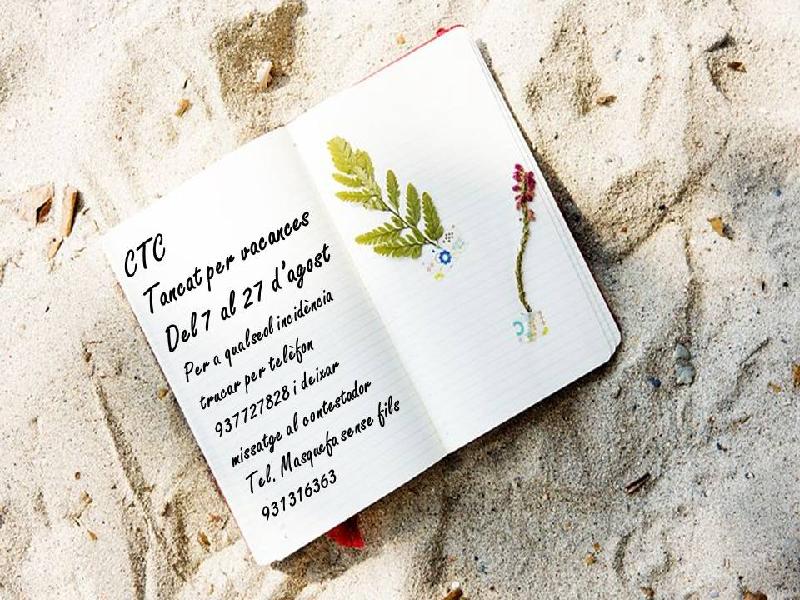 CTC
Tancat per vacances
Del 7 al 27 d'agost
Per a qualsol incidència
trucar per telèfon
937727828 i deixar
missatge al contestador
Tel. Masquefa sense fils
931316363